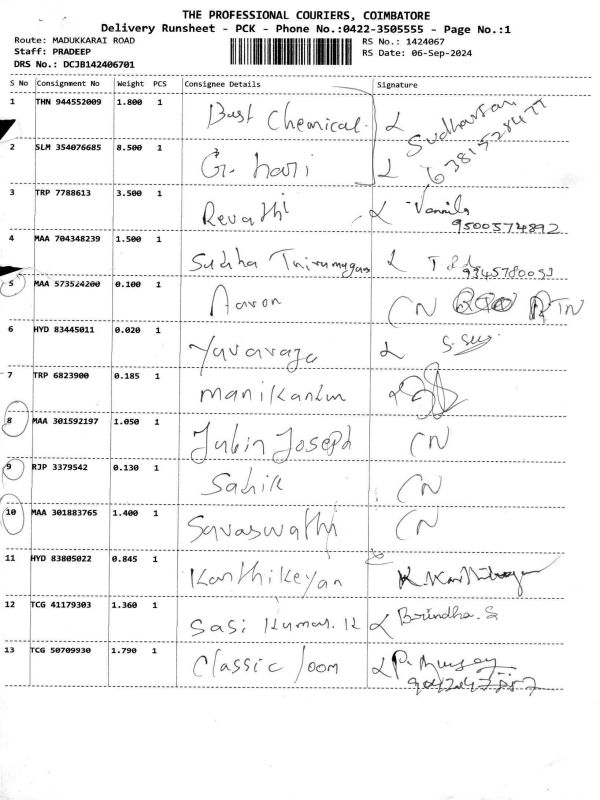 THE PROFESSIONAL COURIERS, COIMBATORE
Delivery Runsheet - PCK - Phone No.:0422-3505555 - Page No.:1
Route: MADUKKARAI ROAD RS No.: 1424067
Staff: PRADEEP RS Date: 06-Sep-2024
DRS No.: DCJB142406701
S No Consignment No Weight PCS Consignee Details Signature
1 THN 944552009 1.800 1 Bast Chemical. Sudharsan
6381528477
2 SLM 354076685 8.500 1 G. hari
3 TRP 7788613 3.500 1 Revathi Vannila
9500574892
4 MAA 704348239 1.500 1 Sudha
5 MAA 573524200 0.100 1 Aaron CN RTN
6 HYD 83445011 0.020 1 Yuvaraja
7 TRP 6823900 0.185 1
8 MAA 301592197 1.050 1 Jubin Joseph CN
9 RJP 3379542 0.130 1 CN
10 MAA 301883765 1.400 1 Saraswathi CN
11 HYD 83805022 0.845 1 Karthikeyan
12 TCG 41179303 1.360 1 Sasi Kumar. K Brindha. S
13 TCG 50709930 1.790 1 Classic loom